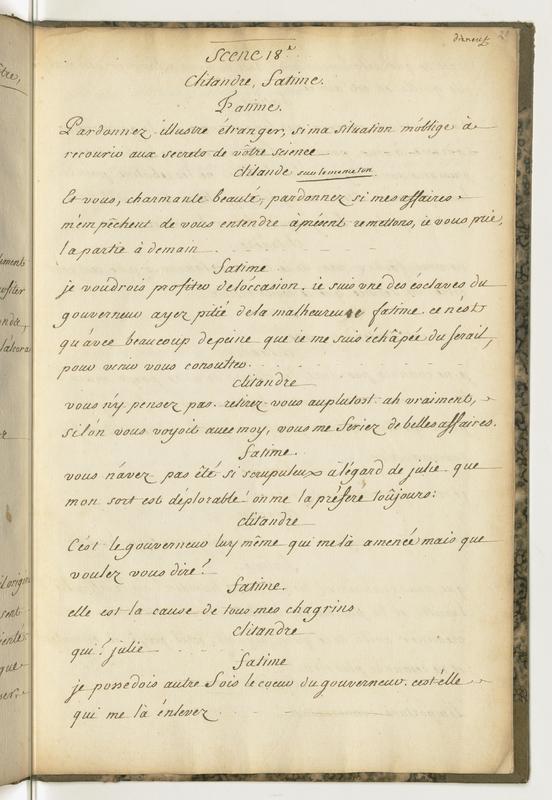 dixneuf
Scene 18e
Clitandre, fatime.
Fatime.
Pardonnez illustre étranger, si ma situation m'oblige à
recourir aux secrets de vôtre science
clitande sur le meme ton
Et vous, charmante beauté, pardonnez si mes affaires
m'empêchent de vous entendre àprésent remettons, ie vous prie,
la partie à demain.
fatime
je voudrois profiter deloccasion. ie suis vne des esclaves du
gouverneur ayez pitié dela malheureuse fatime. ce n'est
qu'avec beaucoup depeine que ie me suis échâpée du serail,
pour venir vous consulter.
clitandre
vous n'y pensez pas. retirez vous auplutost. ah vraiment,
si l'on vous voyoit avec moy, vous me feriez de belles affaires.
fatime.
vous n'avez pas êté si scrupuleux à légard de julie que
mon sort est déplorable! on me la préfére toûjours:
clitandre
C'est le gouverneur luy même qui me là amenée mais que
voulez vous dire?
fatime.
elle est la cause de tous mes chagrins
clitandre
qui? julie
fatime
je possedois autre fois le coeur du gouverneur. cest elle
qui me là énlevez